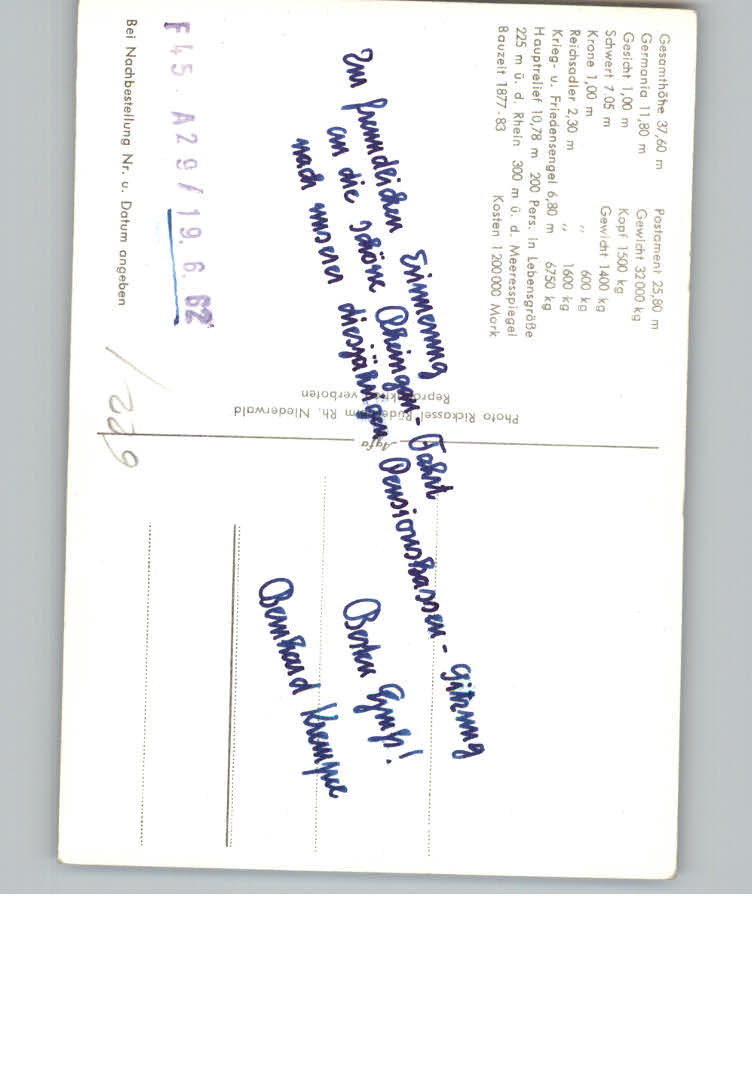 Gesamthöhe 37,60 m Postament 25,80 m
Germania 11,80 m Gewicht 32000 kg
Gesicht 1,00 m Kopf 1500 kg
Schwert 7.05 m Gewicht 1400 kg
Krone 1,00 m ,, 600 kg
Reichsadler 2,30 m ,, 1600 kg
Krieg- u. Friedensengel 6,80 m 6750 kg
Hauptrelief 10,78 m 200 Pers. in Lebensgröße
225 m ü. d. Rhein 300 m ü. d. Meeresspiegel
Bauzeit 1877-83 Kosten 1 200 000 Mark
Zur freundlichen Erinnerung
an die schöne Rheingau-Fahrt
nach unserer diesjährigen Pensionskassen-Sitzung
Besten Gruß!
Bernhard
F45-A29/19.6.62
Bei Nachbestellung Nr. u. Datum angeben
Photo Rickassel Rüdesheim Rh. Niederwald
Reproduktion verboten
Agfa